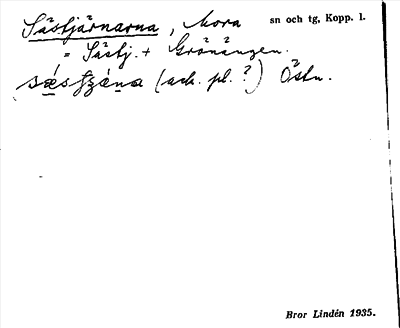 Såstjärnarna, Mora sn och tg, Kopp. l.
= Såstj. + Grönängen.
(ack. pl. ?) Östn.
Bror Lindén 1935.